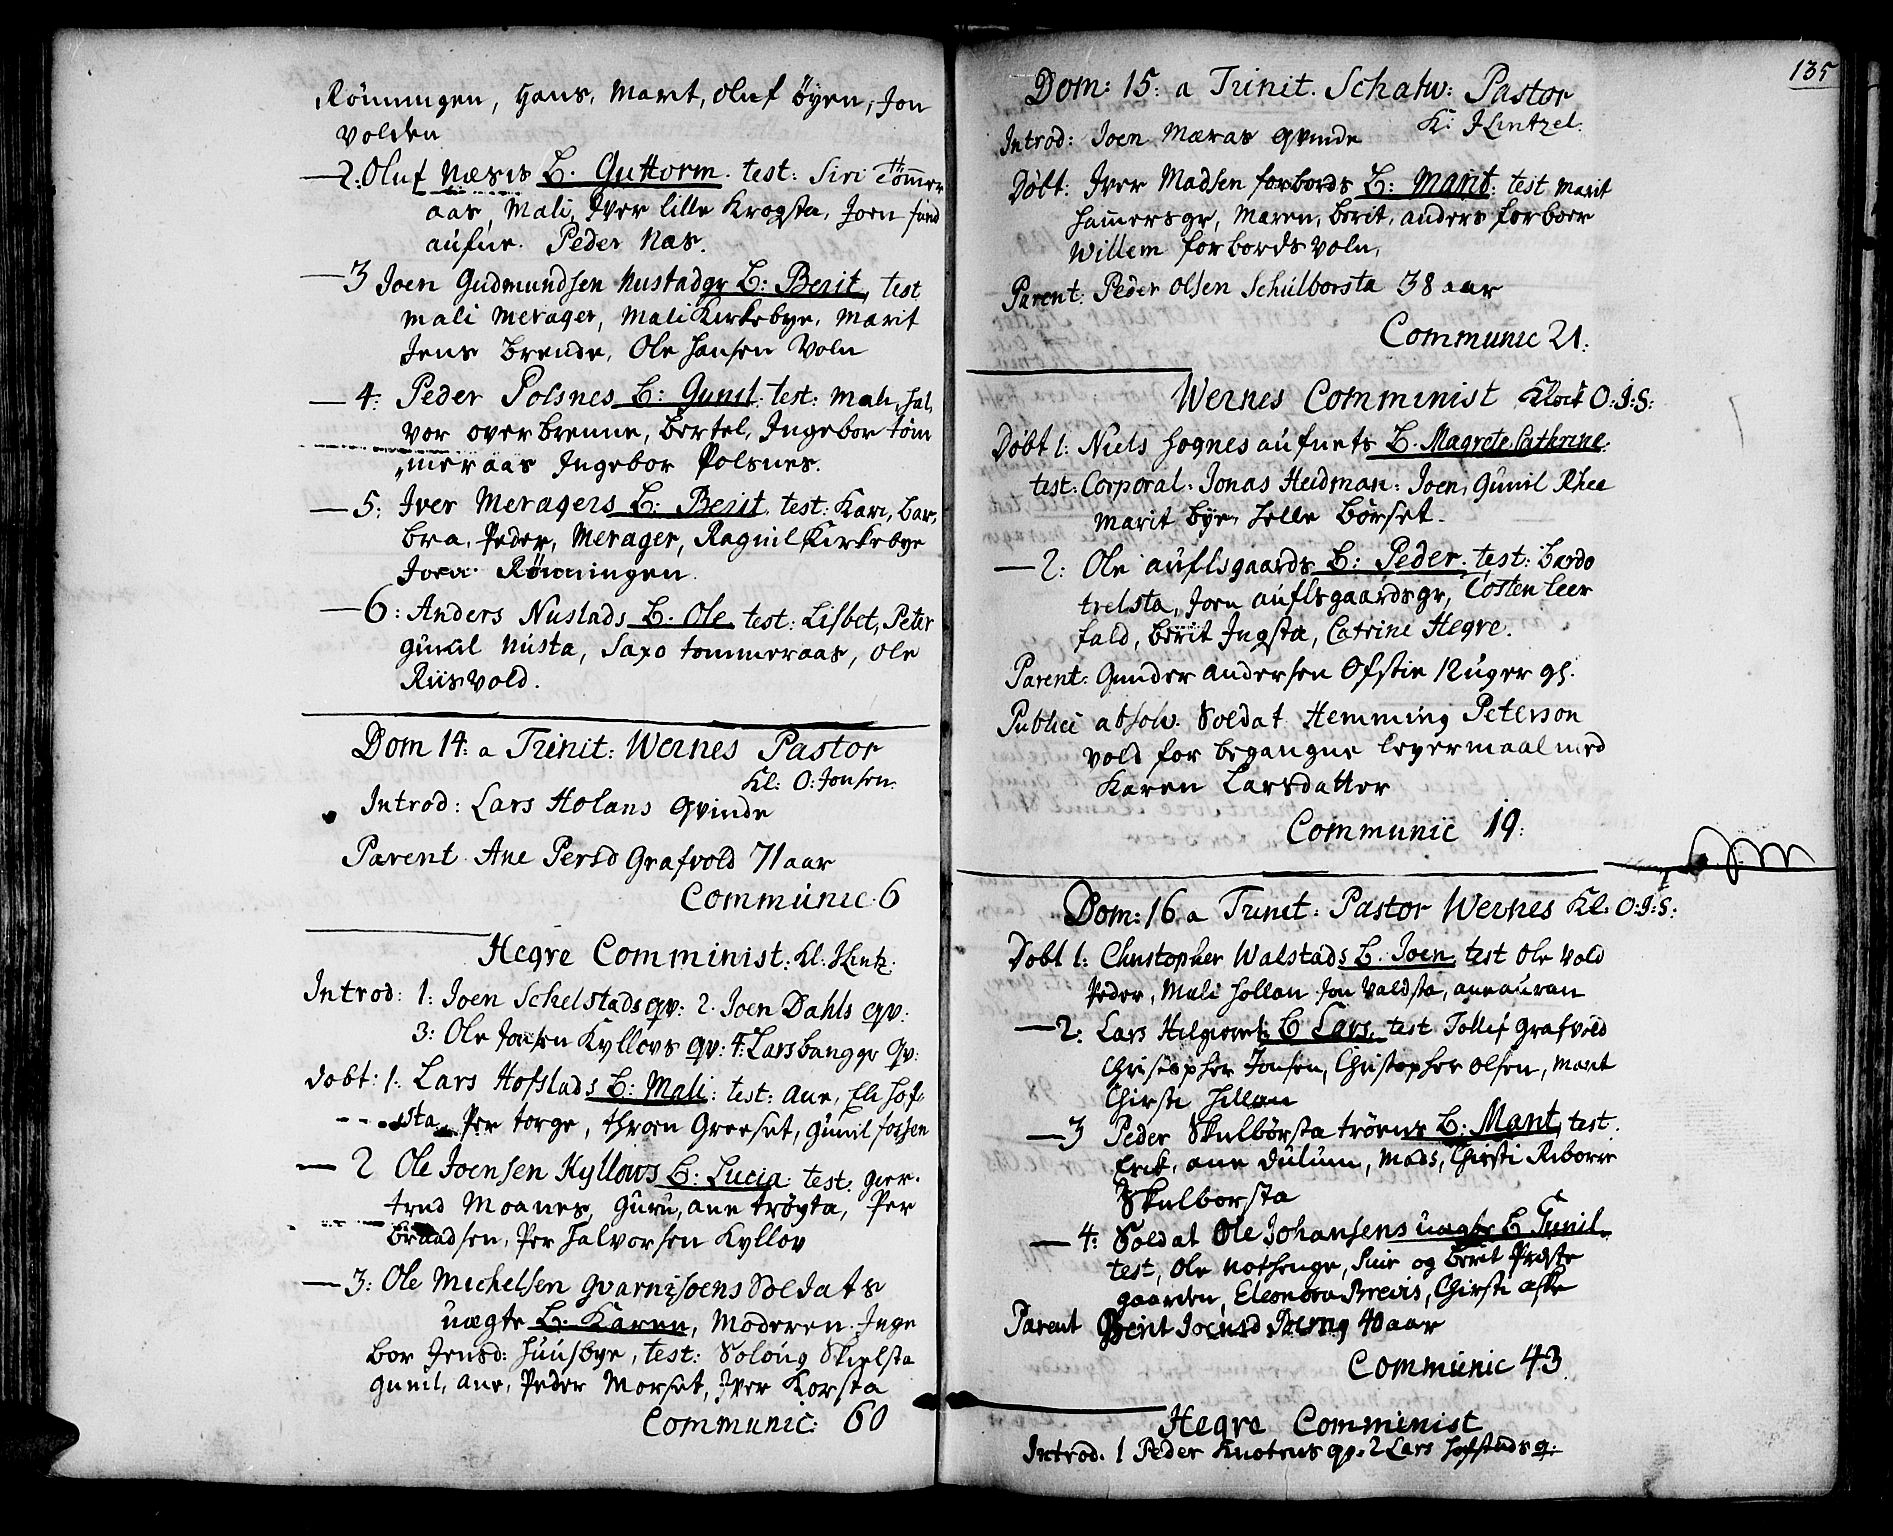 Rönningen, Hans, Marit, Oluf Öyen, Jon
Volden
2. Oluf Næsis B. Guttorm. test: Siri Tömmer
aas, Mali, Iver lille Krogsta, Joen
Peder Næs.
3 Joen Gudmundsen Nustadgr B: Berit, test
Mali Merager, Mali Kirkebye, Marit
Jens Brende, Ole Hansen Voln
4. Peder Polsnes B: Gunil. test: Mali, Hal
vor overbrenne, Bertel, Ingebor töm
meraas Ingebor Polsnes.
5. Iver Meragers B: Berit. test: Kari, Bar,
bra, Peder, Merager, Ragnil Kirkebye
Joen Rönningen.
6: Anders Nustads B. Ole test: Lisbet, Peter
Gunil Nusta, Saxo tommeraas, Ole
Riisvold.
Dom 14: a Trinit: Wernes Pastor
Kl: O: Jonsen.
Introd: Lars Holans Qvinde
Parent Ane Persd Grafvold 71 aar
Communic. 6
Hegre Comminist: Kl: Hintz.
Introd: 1: Joen Schelstads qv: 2. Joen Dahls qv:
3: Ole Jonsen Kyllovs qv: 4: Lars banggr Qv:
Döbt: 1. Lars Hofslads B: Mali: test: Ane, Eli Hof
sta, Per torge, throen Greeset, Gunil fossen
2 Ole Joensen Kyllows B: Lucia. test: Gier-
trud Moanes, Guru, ane tröyta, Per
Braadsen, Per Halvorsen Kyllov
3: Ole Michelsen Gvarnisoens Soldats
uægte B: Karen, Moderen Inge
bor Jensd: Huusbye, test: Solöng Skielsta
Gunil, Ane, Peder Morset, Iver Korsta
Communic: 60
135
Dom: 15: a Trinit. Schatw: Pastor
K: Hintzel.
Introd: Joen Mæraas Qvinde
Döbt: Iver Madsen forbords B: Marit: test Marit
Hamersgr, Maren, Berit, anders forboer
Willem forbordsvoln,
Parent: Peder Olsen Schulborsta 38 aar
Communic 21:
Wernes Comminist Klock O:I:S:
Döbt 1: Niels Hognes B. Magrete Cathrine.
test: Corporal: Jonas Heidman: Joen, Gunil Rhee
Marit bye, Helle Börset.
2: Ole auflsgaards B: Peder. test: Bardo
trelsta, Joen auflsgaardsgr, Costen leer
fald, Berit Ingsta, Catrine Hegre.
Parent: Gunder Andersen Ofstie 12 uger gl.
Publicè absolv. Soldat Hemming Peterson
vold for begangne leyermaal med
Karen Larsdatter
Communic 19:
Dom: 16 a Trinit: Pastor Wernes Kl: O:I:S:
Döbt 1: Christopher Walstads B. Joen test Ole Vold
Peder, Mali Hollan Jon Valdsta, ane auran
2: Lars B Lars, test Tollef Grafvold
Christopher Jonsen, Christopher Olsen, Marit
Chirsti Hellan
3 Peder Skulbörsta tröens B: Marit, test.
Erik, ane Dulum, Mads, Chirsti
Skulborsta
4: Soldat Ole Johansens uægte B Gunil.
test, Ole nothenge, Siri og Berit Præste
gaarden, Eleonora Brevis, Chirsti
Parent Berit Joensd 40 aar
Communic 43
Hegre Comminist
Introd. 1 Peder qv. 2 Lars Hofstads q: